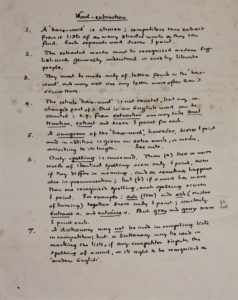 Word-extraction
1. A base-word is chosen; competitors then extract
from it lists of as many shorter words as they can
find. Each separate word scores 1 point.
2. The extracted words must be recognised modern Eng-
lish words generally understood or used by literate
people.
3. They must be made only of letters found in the 'base-
word' and may not use any letter more often than it
occurs there.
4. The whole 'base-word' is not counted, but any
part of it that is an English word can be
counted; e.g. From extraction we may take
traction, extract and score 1 point for each.
5. A anagram of the 'base-word', however, scores 1 point
and in addition is given an extra mark,
according to its length.
6. Only spelling is concerned. Thus (a) two or more
words of identical spelling score only 1 point, even
if they differ in meaning, and or
in pronunciation; but (b) if a word has more
than one recognised spelling, each spelling scores
1 point. For example: ash (tree) and ash (residue
of burning) together score only 1 point; similarly
and. But grey and gray score
1 point each.
7. A dictionary may not be used in compiling lists
in competition; but a dictionary may be used in
marking the lists, if any competitor disputes the
spelling of a word, or its right to be recognised as
'modern English'.